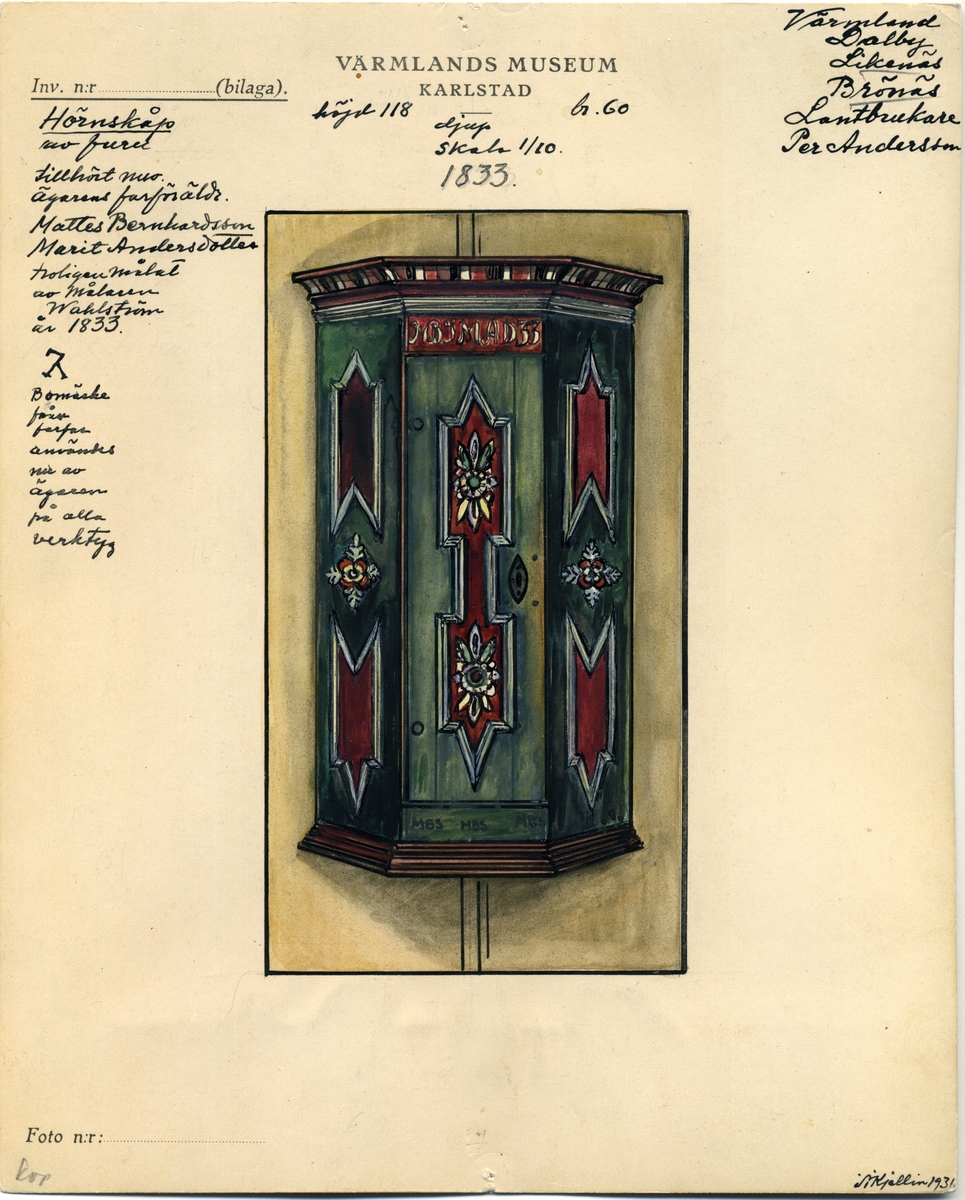 VÄRMLANDS MUSEUM
KARLSTAD
Inv. n:r (bilaga).
Värmland
Dalby
Likenäs
Brönäs
Lantbrukare
Per Andersson
höjd 118 br. 60
djup
skala 1/10.
1833.
Hörnskåp
av furu
tillhört nuv.
ägarens farföräldr.
Mattes Bernhardsson
Marit Andersdotter
troligen målat
av målaren
Wahlström
år 1833.
Bomärke
från
farfar
användes
nu av
ägaren
på alla
verktyg
MBSMAD33
MBS MBS MBS
Foto n:r:
kop
Kjellin 1931